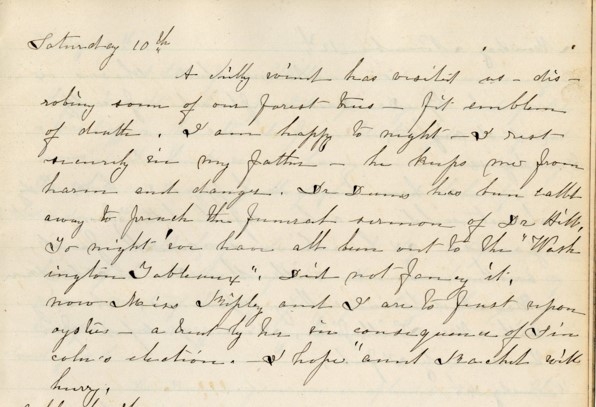 Saturday 10th
A chilly wind has visited us - dis-
robing some of our forest trees - fit emblem
of death. I am happy to night - I rest
securely in my father - he keeps me from
harm and danger. Dr Dunn has been called
away to preach the funeral sermon of Dr Hill.
To night we have all been out to the "Wash
ington Tableaux". Did not fancy it.
now Miss Ripley and I are to feast upon
oysters - a treat by her in consequence of Lin
coln's election. - I hope "aunt Rachel will
hurry.